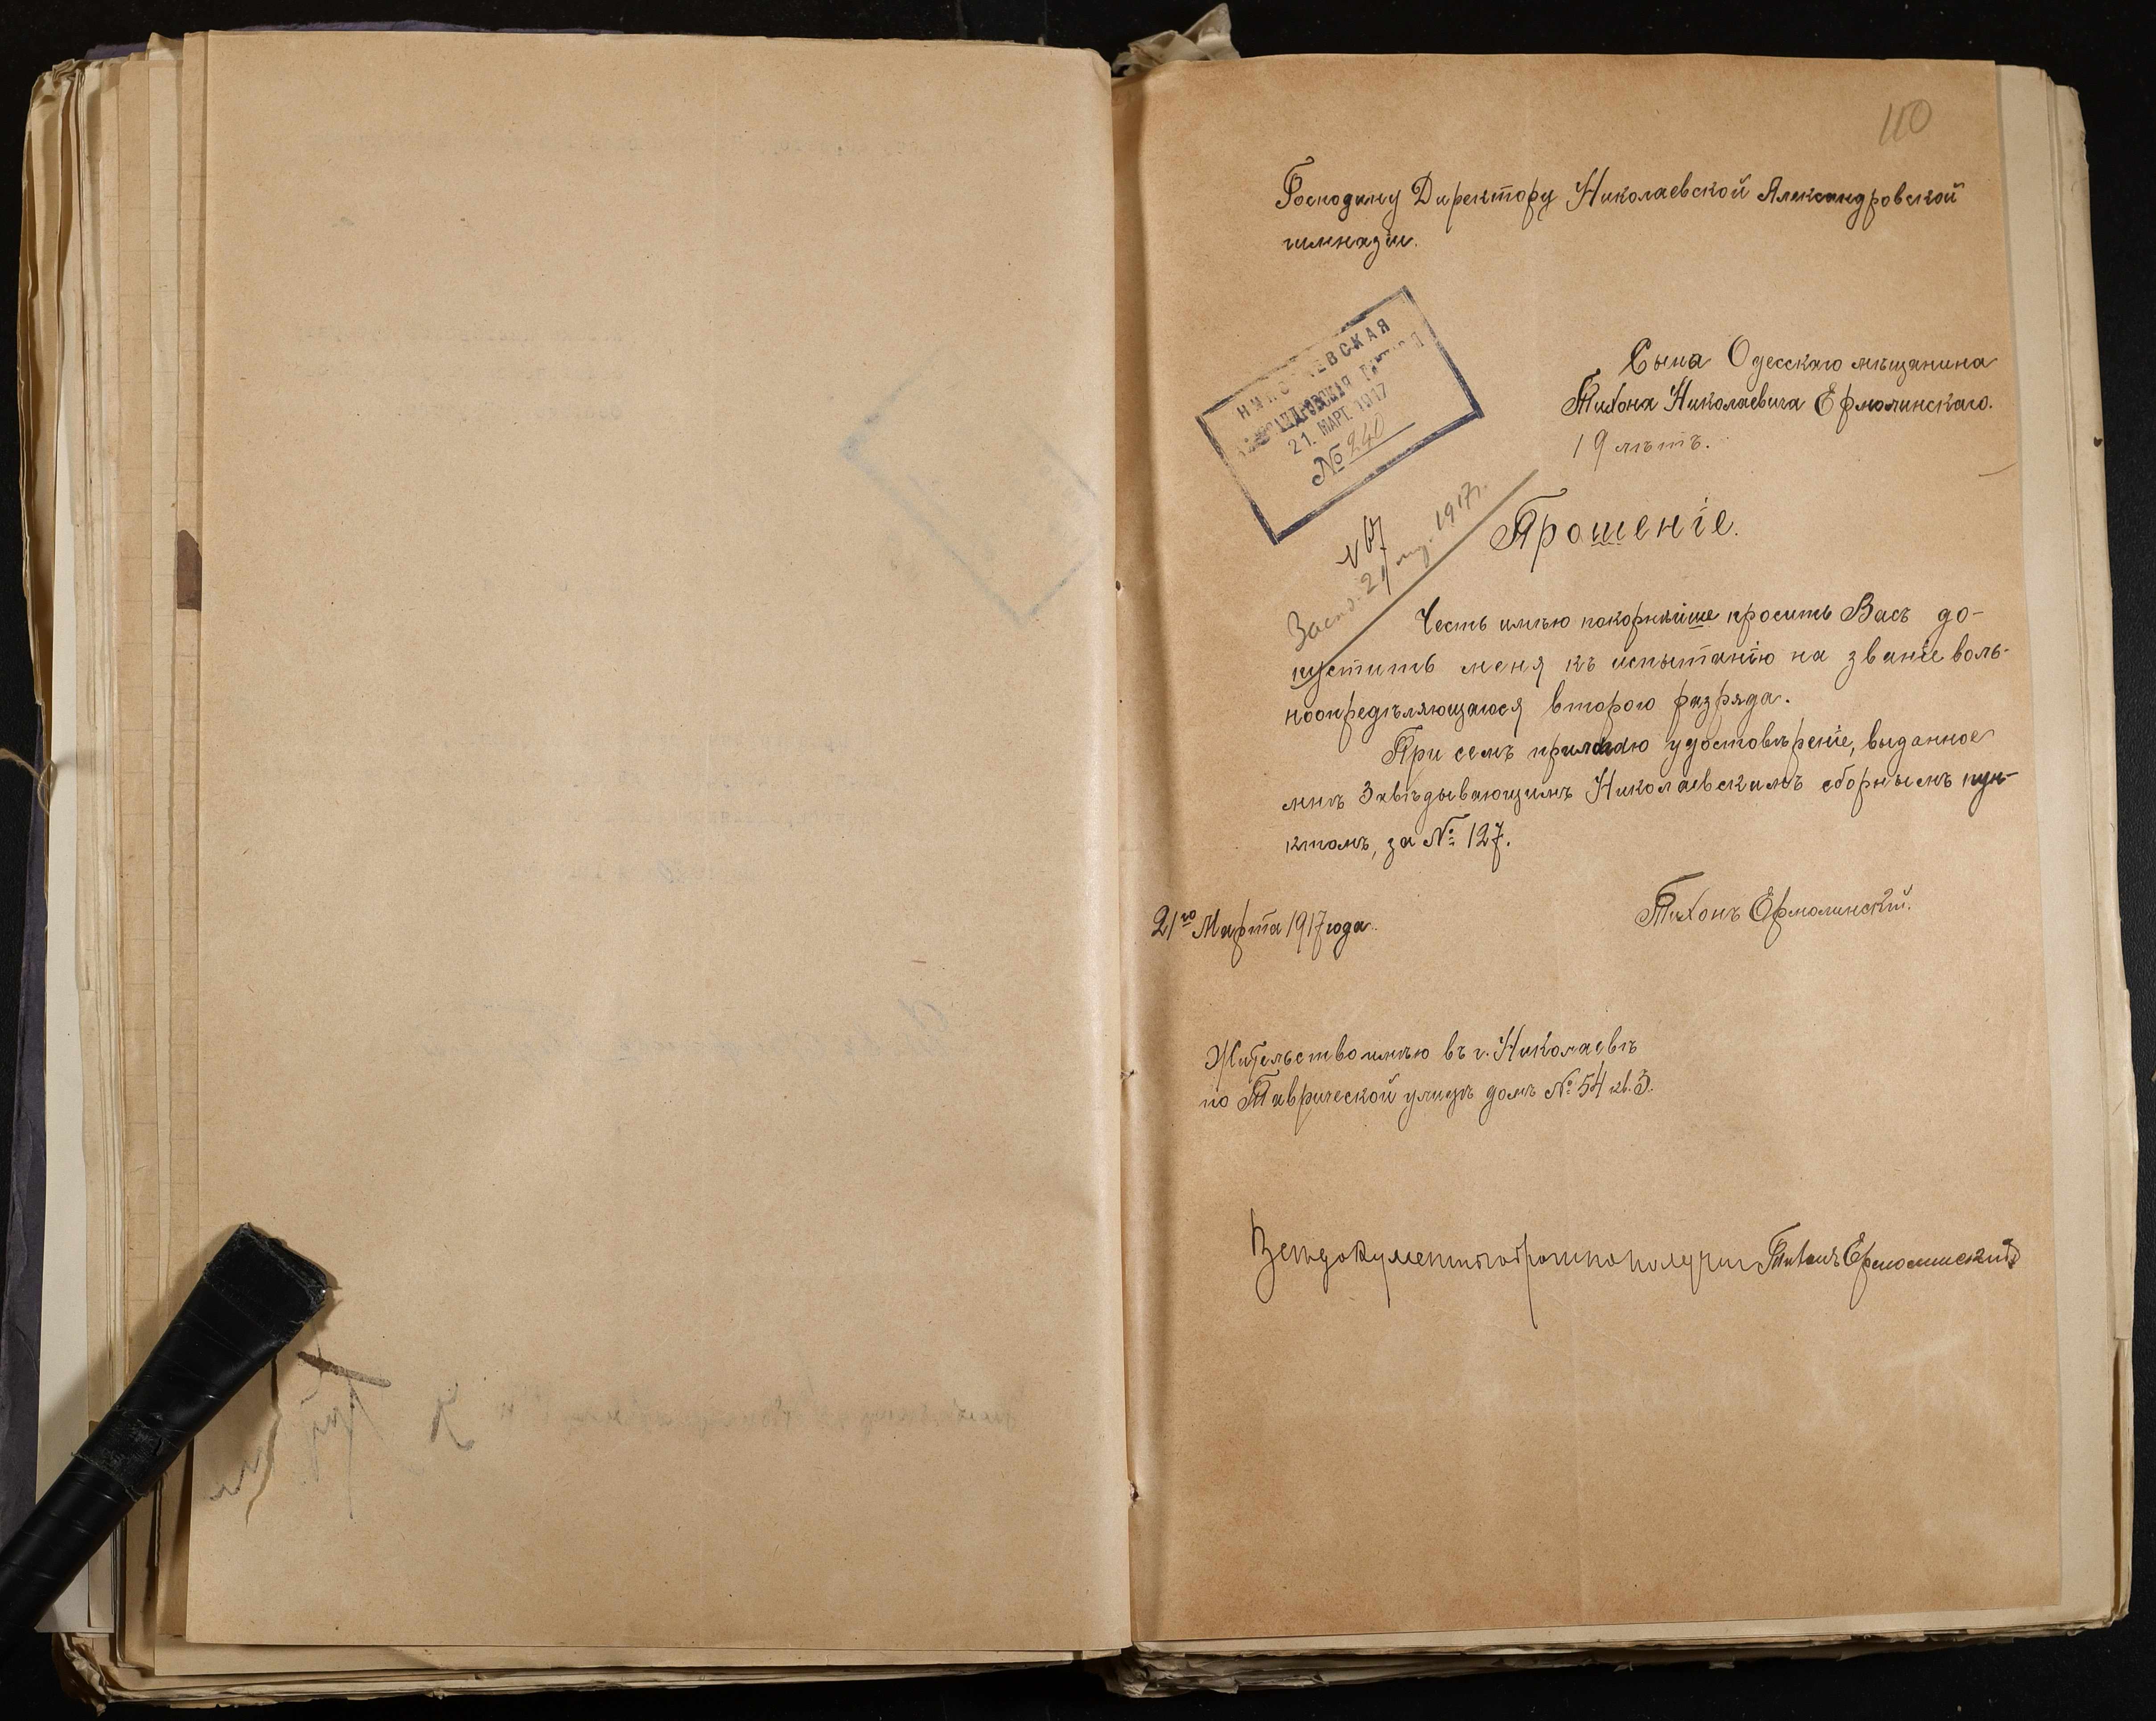 110
Господину Директору Николаевской Александровской
гимназіи.
НИКОЛАЕВСКАЯ
АЛЕКСАНДРОВСКАЯ ГИМНАЗІЯ
21. МАРТ. 1917
№ 240
Сына Одесскаго мѣщанина
Тихона Николаевича Ермолинскаго.
19 лѣтъ.
1917г.
Прошеніе.
Честь имѣю покорнѣйше просить Васъ до-
пустить меня къ испытанію на званіе воль-
ноопредѣляющагося второго разряда.
При семъ прилагаю удостовѣреніе, выданное
мнѣ Завѣдывающимъ Николаевскимъ сборнымъ пун-
ктомъ, за № 127.
Тихонъ Ермолинскій.
21го Марта 1917 года.
Жительство имѣю въ г. Николаевѣ
по Таврической улицѣ домъ № 54 кв. 3.
Всѣ документы обратно получилъ Тихонъ Ермолинскій